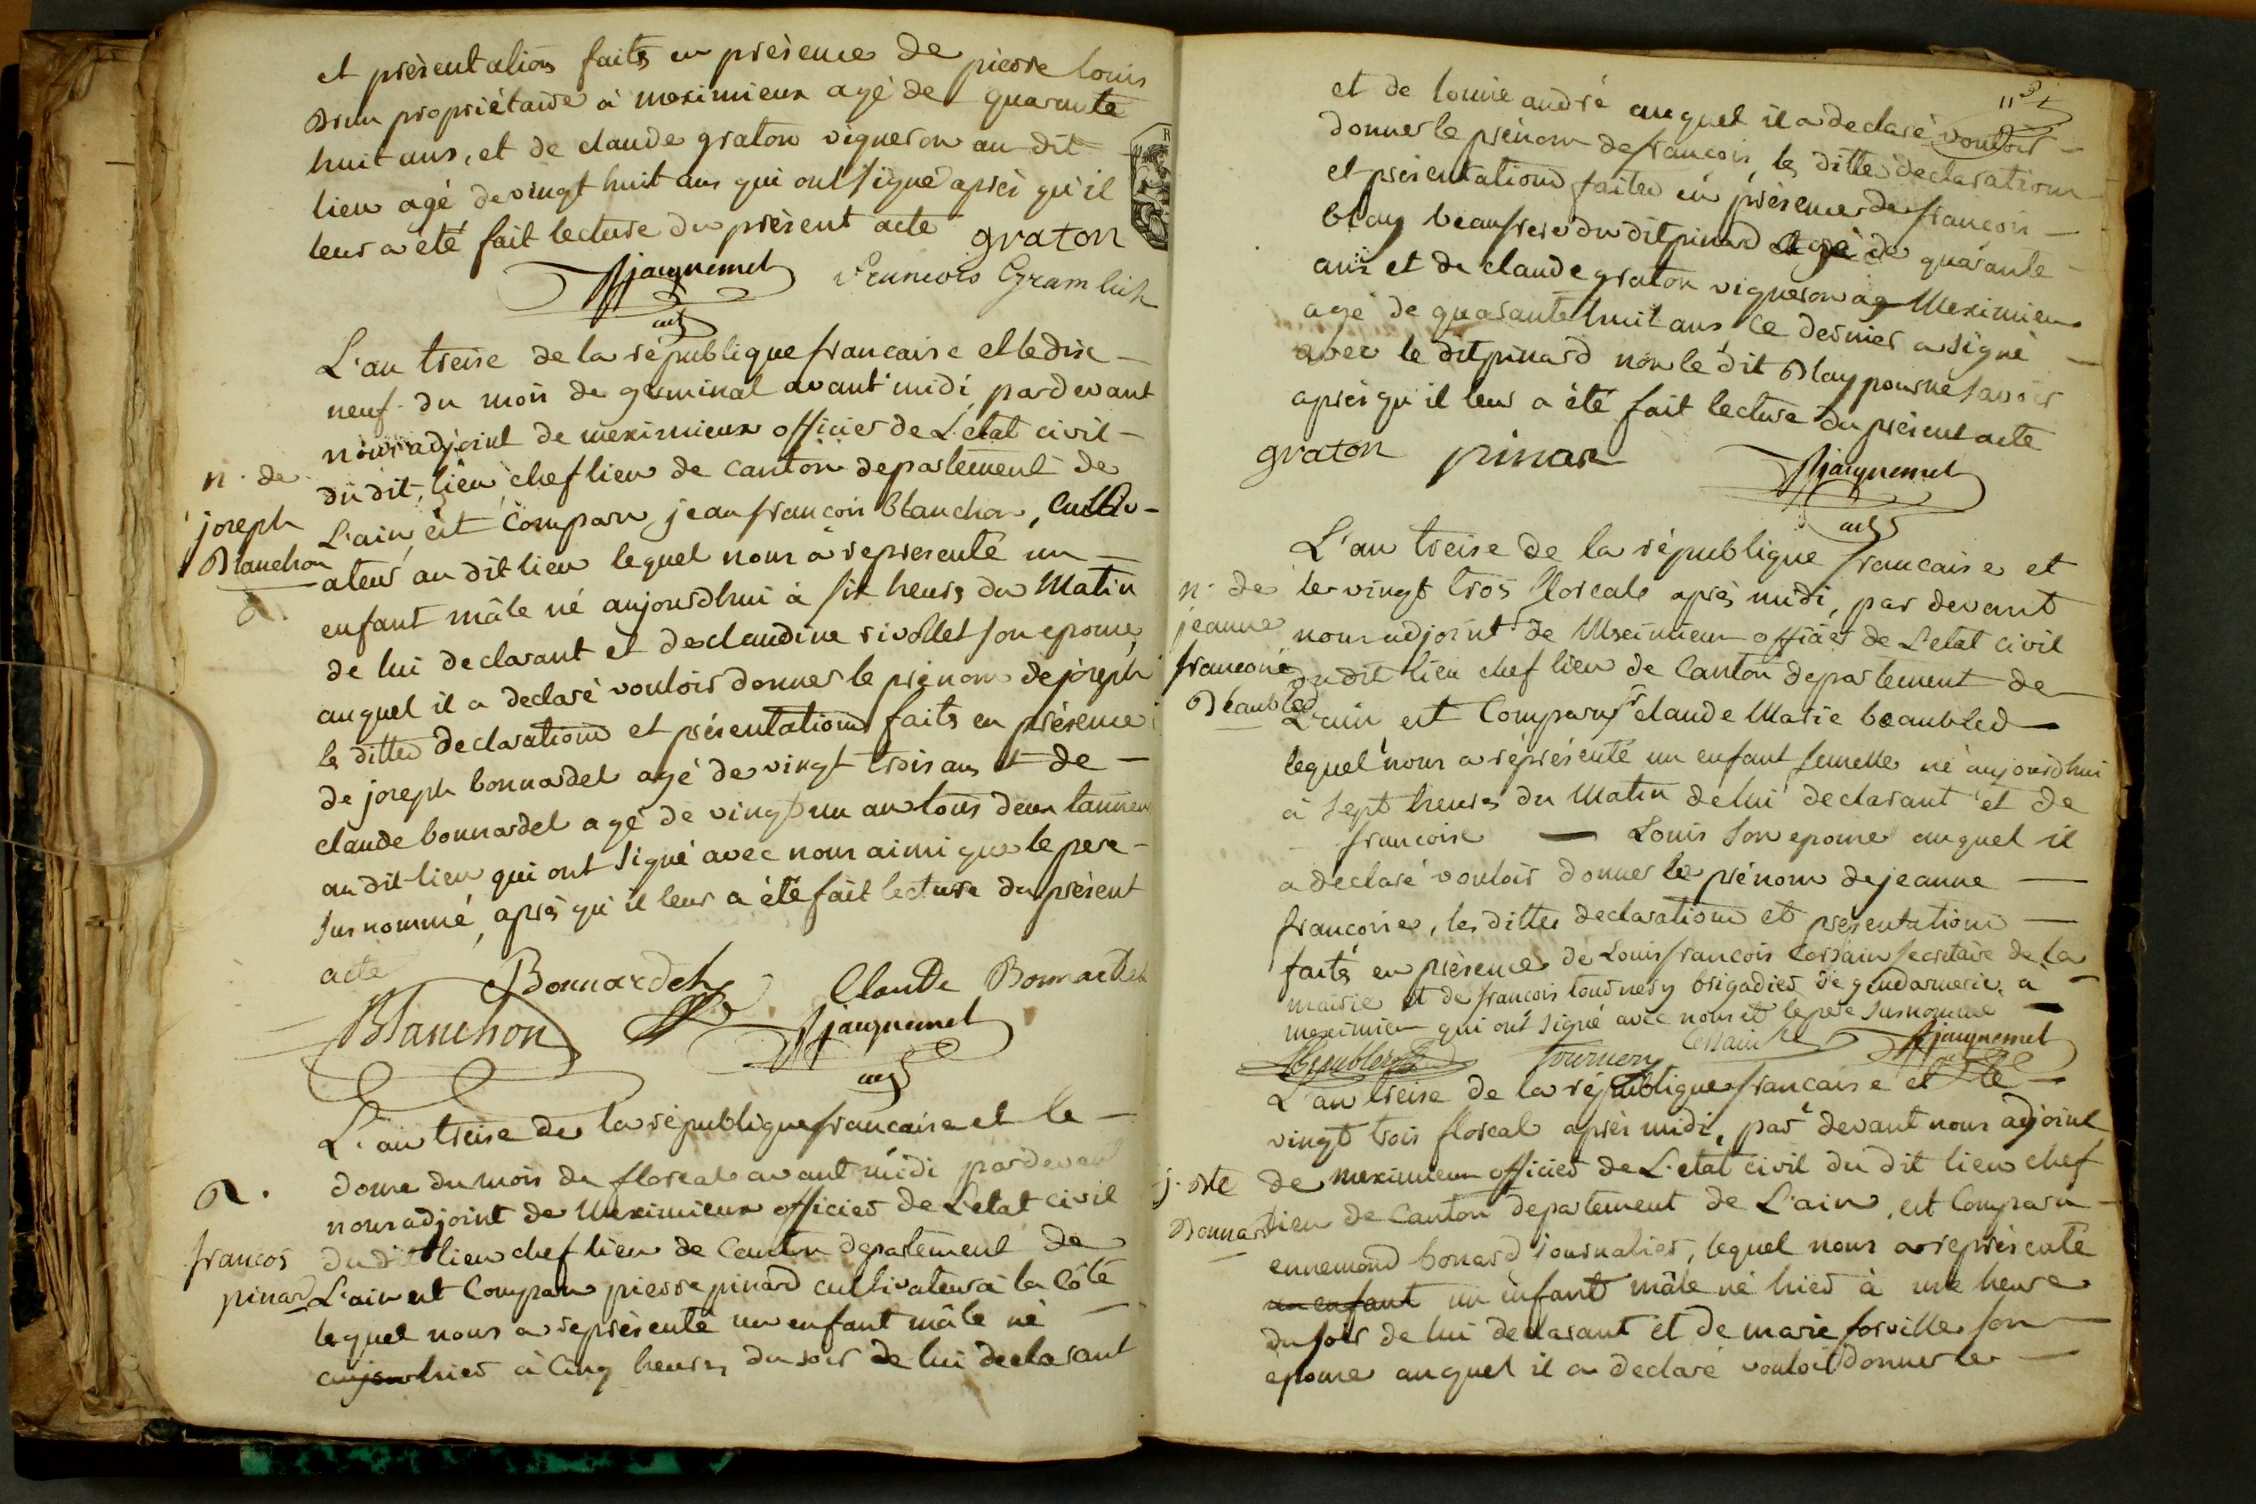 et présentations faits en présence de pierre louis
Drun propriétaire à meximieux agé de quarante
huit ans, et de claude graton vigneron au dit
lieu agé de vingt huit ans qui ont signé après qu'il
leur a été fait lecture du présent acte graton
Jjacquemet francois Gramlich
adj
L'an treise de la république francaise et le dix
neuf du mois de germinal avant midi pardevant
nous adjoint de meximieux officier de L'etat civil
n. de
joseph
Blanchon
du dit lieu chef lieu de canton departement de
L'ain, est Comparu jean francois blanchon, Cultiv-
ateur au dit lieu lequel nous a representé un
enfant mâle né aujourdhui à six heures du Matin
de lui declarant et de claudine rivollet son epouse,
auquel il a declaré vouloir donner le prénom de joseph
les dittes declarations et présentations faits en présence
de joseph bonnardel agé de vingt trois ans et de
claude bonnardel agé de vingt un an tous deux tanneurs
au dit lieu qui ont signé avec nous ainsi que le pere
sus nommé, après qu'il leur a été fait lecture du présent
acte
Bonnardel Claude Bonnardel
Blanchon Jjacquemet
adj
L'an treise de la république francaise et le
douse du mois de floreal avant midi pardevant
nous adjoint de Meximieux officier de L'etat civil
francos
pinard
du dit lieu chef lieu de Canton departement de
L'ain est Comparu pierre pinard cultivateur à la Côte
lequel nous a représenté un enfant mâle né
aujour hier à Cinq heures du soir de lui declarant
113
et de louise andré auquel il a declaré vouloir
donner le prénom de francois, les dittes déclarations
et présentations faites en présence de francois
blay beaufrere du dit pinard agé de quarante
ans et de claude graton vigneron à Meximieux
agé de quarante huit ans ce dernier a signé
avec le dit pinard non le dit Blay pour ne savoir
après qu'il leur a été fait lecture du présent acte
graton pinar
Jjacquemet
adj
L'an treise de la république francaise et
n. de
jeanne
francoise
Beaubled
le vingt trois floreale après midi, par devant
nous adjoint de Meximieux officier de L'etat civil
du dit lieu chef lieu de Canton departement de
L'ain est Comparu claude Marie beaubled
lequel nous a représenté un enfant femelle né aujourdhui
à sept heures du Matin de lui declarant et de
francoise — Louis son epouse auquel il
a declaré vouloir donner le prénom de jeanne
francoise, les dittes declarations et présentations
faités en présence de Louis francois Cossain secretaire de la
mairie et de francois tournery brigadier de gendarmerie à
meximieu qui ont signé avec nous et le pere susnommé
Beaubled tournery Cossain Jjacquemet
L'an treise de la république francaise et le
vingt trois floreal après midi, par devant nous adjoint
j. Bte
Bonnard
de meximieux officier de L'etat civil du dit lieu chef
lieu de Canton departement de L'ain, est Comparu
ennemond bonard journalier, lequel nous a représenté
un enfant un enfant mâle né hier à une heure
du soir de lui declarant et de marie forville son
epouse auquel il a declaré vouloit donner le